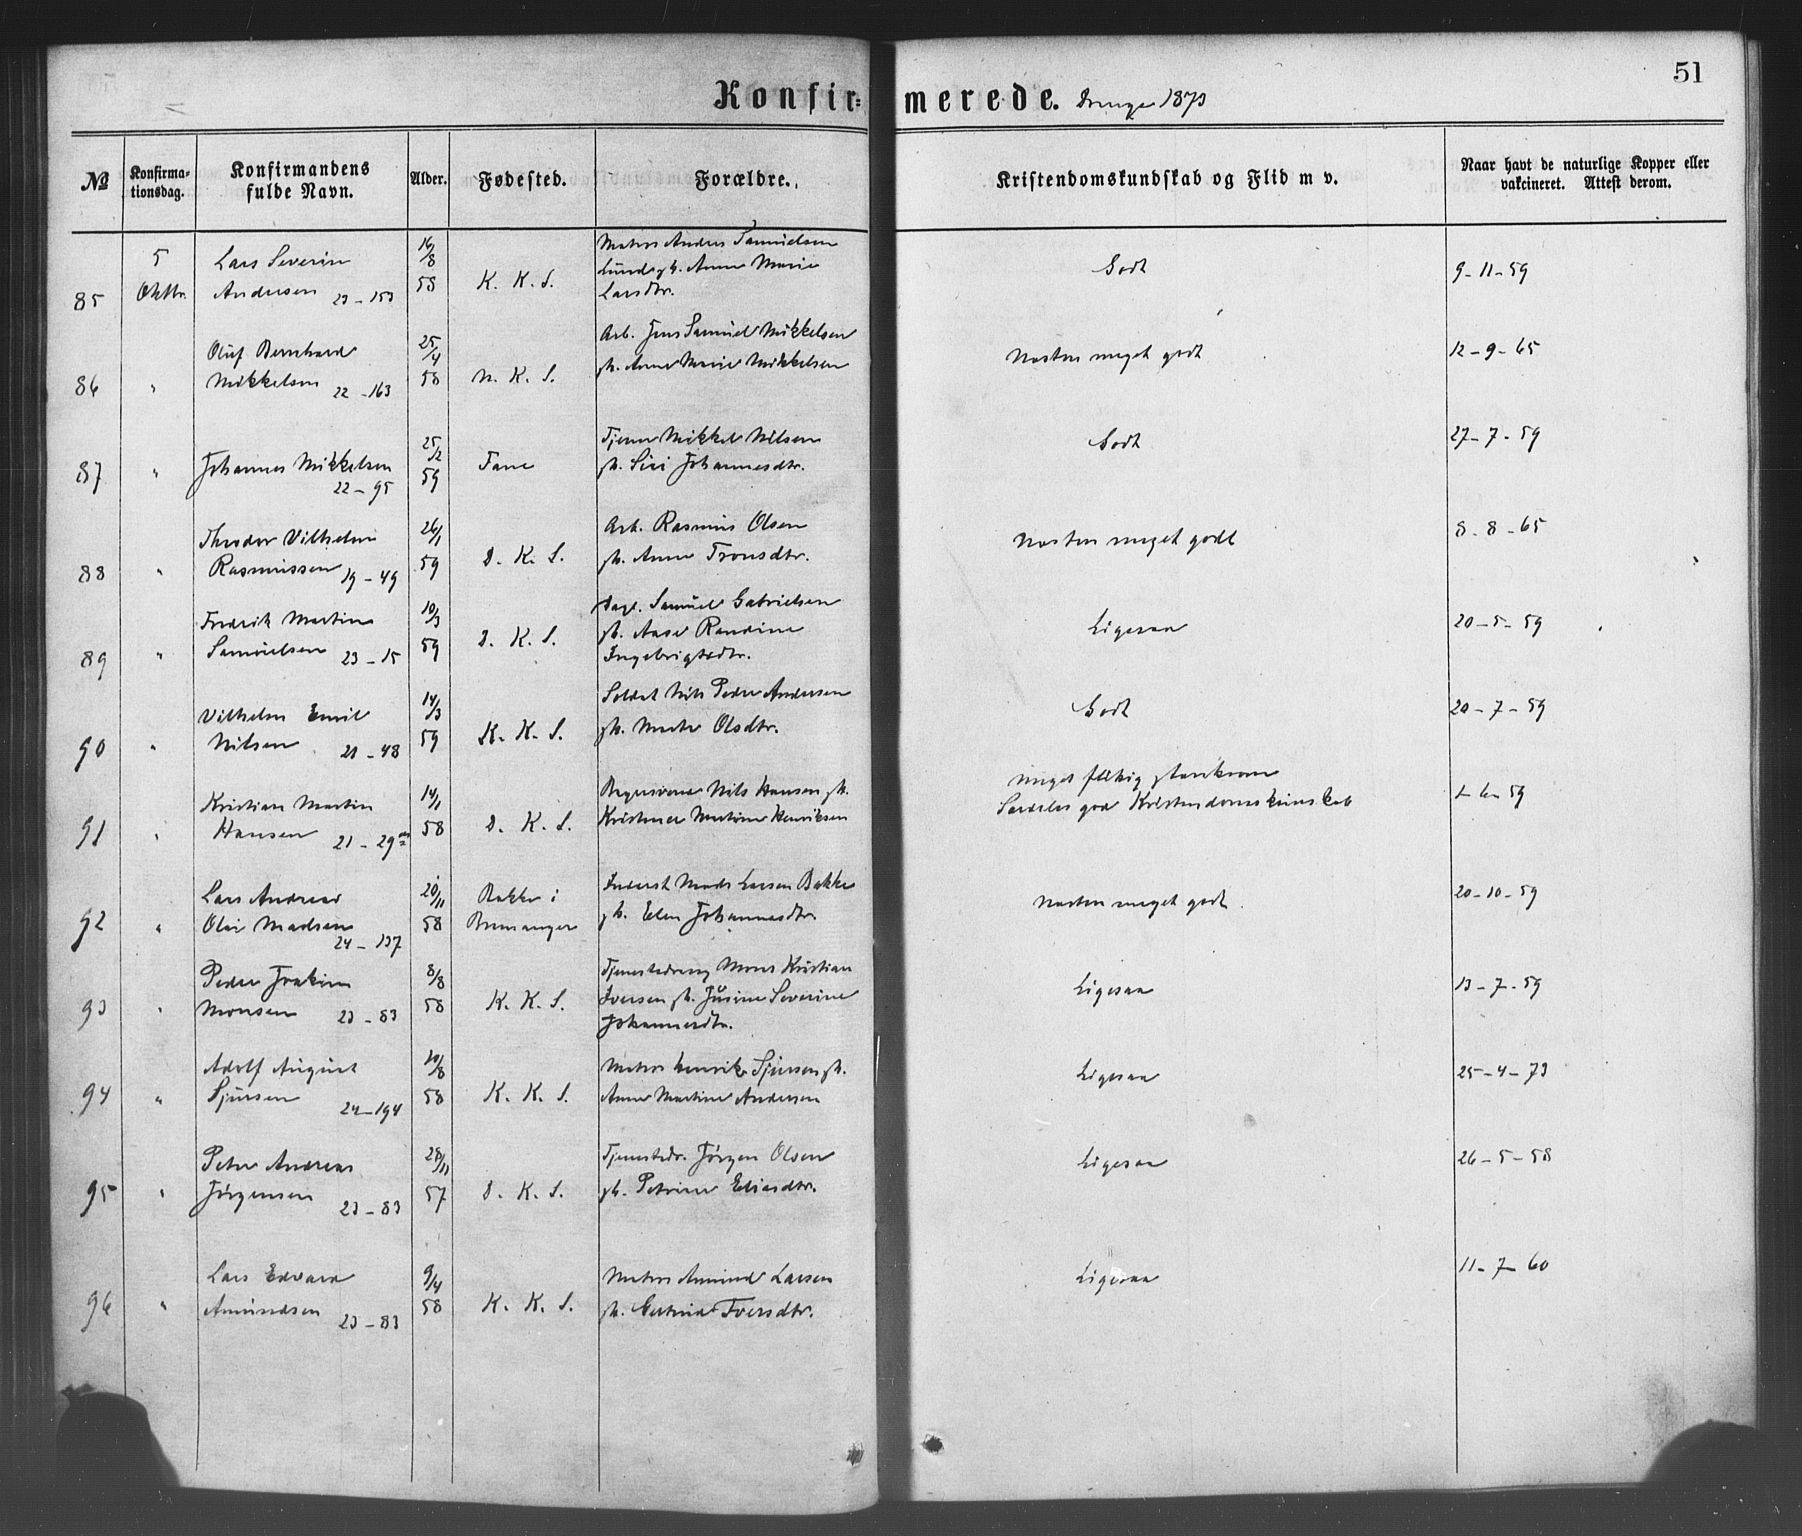 51
Konfirmerede. Drenge 1873
№
Konfirma-
tionsdag.
Konfirmandens
fulde Navn.
Alder.
Fødested.
Forældre.
Kristendomskundskab og Flid m v.
Naar havt de naturlige Kopper eller
vakcineret. Attest derom.
85
5
Oktbr.
Lars Severin
Andersen 23-153
16/8
58
K. K. S.
Matros Anders Samuelsen
Lund gh. Anne Marie
Larsdtr.
Godt
9-11-59
86 "
Oluf Bernhard
Mikkelsen 22-163
25/4
58
N. K. S.
Arb. Jens Samuel Mikkelsen
gh. Anne Marie Mikkelsen
Næsten meget godt
12-9-65
87 "
Johannes Mikkelsen
22-95
25/2
59
Fane
Tjener Mikkel Nilsen
gh. Siri Johannesdtr.
Godt
27-7-59
88 "
Theodor Vilhelm
Rasmussen 19-49
26/1
59
D. K. S.
Arb. Rasmus Olsen
gh. Anne Tronsdtr.
Næsten meget godt
8-8-65
89 "
Fredrik Martin
Samuelsen 23-15
10/3
59
D. K. S.
Dagl. Samuel Gabrielsen
gh. Aase Randine
Ingebrigtsdtr.
Ligesaa
20-5-59
90 "
Vilhelm Emil
Nilsen 21-48
14/3
59
K. K. S.
Soldat Nils Peder Andersen
gh. Marte Olsdtr.
Godt
20-7-59
91 "
Kristian Martin
Hansen 21-29
14/1
58
D. K. S.
Nils Hansen gh.
Kristine Martine Henriksen
Meget flittig
Særdeles god Kristendomskundskab
1-6-59
92 "
Lars Andreas
Olai Madsen
24-137
20/11
58
Bakke i
Bremanger
Inderst Mads Larsen Bakke
gh. Elen Johannesdtr.
Næsten meget godt.
20-10-59
93 "
Peder Joakim
Monsen 23-83
8/8
58
K. K. S.
Tjenestedreng Mons Kristian
Iversen gh. Jusine Severine
Johannesdtr.
Ligesaa
13-7-59
94 "
Adolf August
Sjursen 24-194
20/8
58
K. K. S.
Matros Henrik Sjursen gh.
Anne Martine Andersen
Ligesaa
25-4-73
95 "
Peter Andreas
Jörgensen 23-83
28/11
57
D. K. S.
Tjenestedr. Jörgen Olsen
gh. Petrine Eliasdtr.
Ligesaa
26-5-58
96 "
Lars Edvard
Amundsen 23-83
9/4
58
K. K. S.
Matros Amund Larsen
gh. Gertrud Iversdtr.
Ligesaa
11-7-60